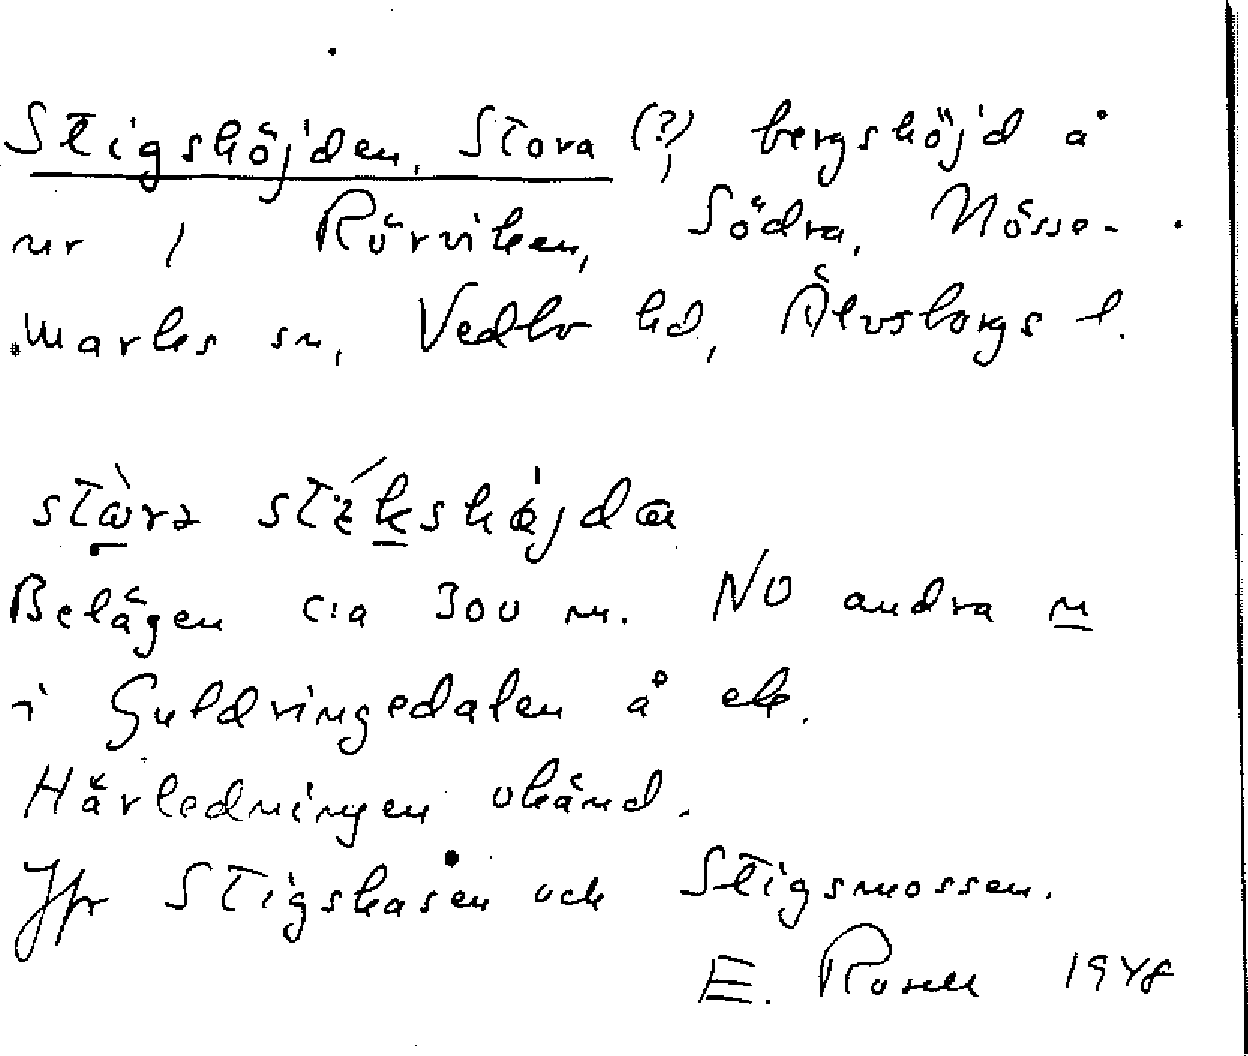 Stigshöjden, Stora (?), bergshöjd å
nr 1 Rörviken, Södra, Nösse-
marks sn, Vedbo hd, Älvsborgs l.
Belägen c:a 300 m. NO andra n
i Guldringedalen å ek.
Härledningen okänd.
Jfr Stigskasen och Stigsmossen.
E. Rosell 1948